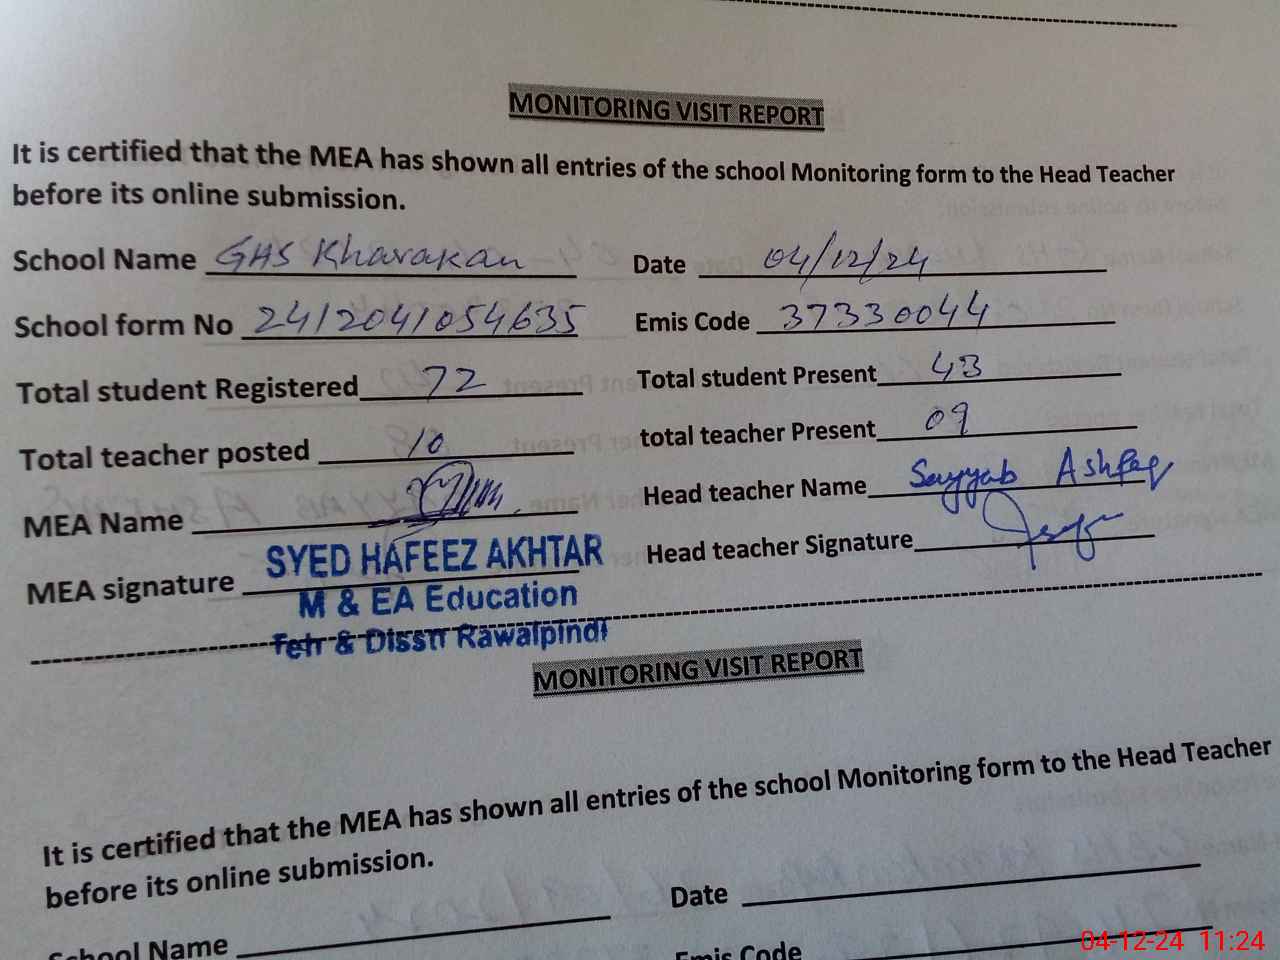 MONITORING VISIT REPORT
It is certified that the MEA has shown all entries of the school Monitoring form to the Head Teacher
before its online submission.
School Name GHS Kharakan Date 04/12/24
School form No 2412041054635 Emis Code 37330044
Total student Registered 72 Total student Present 43
Total teacher posted 10 total teacher Present 09
MEA Name Head teacher Name Sayyab Ashfaq
MEA signature Head teacher Signature
SYED HAFEEZ AKHTAR
M & EA Education
Tehr & Disstt Rawalpindi
MONITORING VISIT REPORT
It is certified that the MEA has shown all entries of the school Monitoring form to the Head Teacher
before its online submission.
School Name Date
Emis Code
04-12-24 11:24